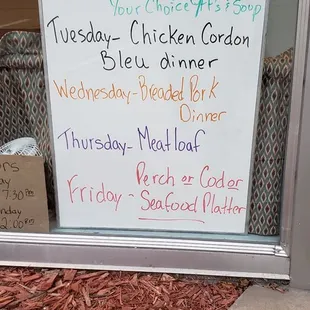 Your Choice
& Soup
Tuesday- Chicken Cordon
Bleu dinner
Wednesday- Breaded Pork
Dinner
Thursday- Meatloaf
Friday- Perch or Cod or
Seafood Platter
7:30
2:00